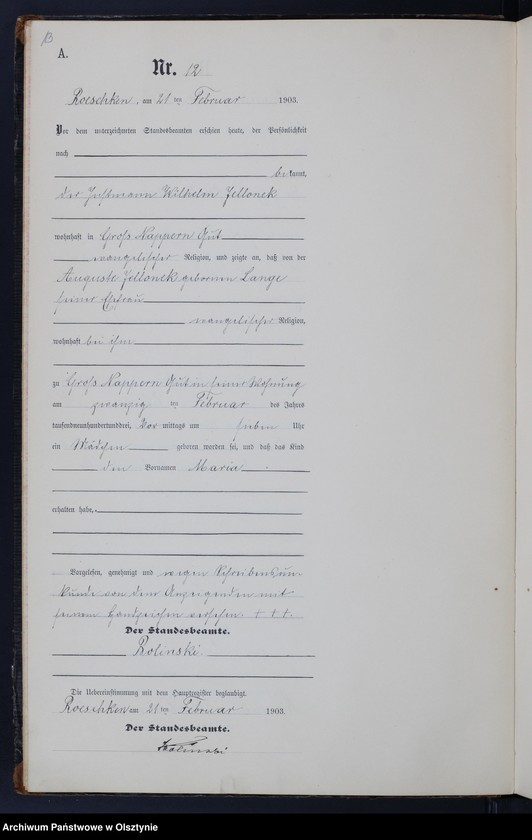 13
A.
Nr. 12
Roeschken, am 21 ten Februar 1903.
Vor dem unterzeichneten Standesbeamten erschien heute, der Persönlichkeit
nach
bekannt,
der Instmann Wilhelm Jellonek
wohnhaft in Groß Nappern Gut
evangelischer Religion, und zeigte an, daß von der
Auguste Jellonek geborenen Lange
seiner Ehefrau
evangelischer Religion,
wohnhaft bei ihm
zu Groß Nappern Gut in seiner Wohnung
am zwanzig ten Februar des Jahres
tausendneunhundertunddrei, Vor mittags um sieben Uhr
ein Mädchen geboren worden sei, und daß das Kind
den Vornamen Maria
erhalten habe.
Vorgelesen, genehmigt und wegen Schreibensun-
kunde von dem Anzeigenden mit
seinem Handzeichen versehen. + + +.
Der Standesbeamte.
Rolinski.
Die Uebereinstimmung mit dem Hauptregister beglaubigt.
Roeschken am 21 ten Februar 1903.
Der Standesbeamte.
Rolinski
Archiwum Państwowe w Olsztynie